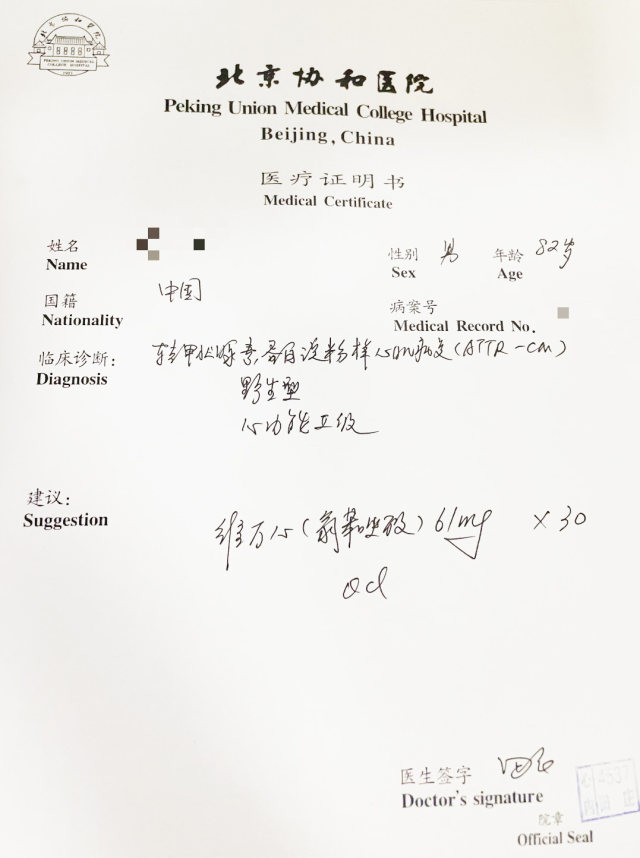 北京协和医院
PEKING UNION MEDICAL COLLEGE HOSPITAL
1921
北京协和医院
Peking Union Medical College Hospital
Beijing, China
医疗证明书
Medical Certificate
姓名
Name
性别 男 年龄 82岁
Sex Age
国籍 中国
Nationality
病案号
Medical Record No.
临床诊断: 转甲状腺素蛋白淀粉样心肌病变(ATTR-CM)
Diagnosis 野生型
心功能Ⅱ级
建议:
Suggestion 维万心(氯苯唑酸) 61mg × 30
qd
医生签字
Doctor's signature
心 4537
内
院章
Official Seal